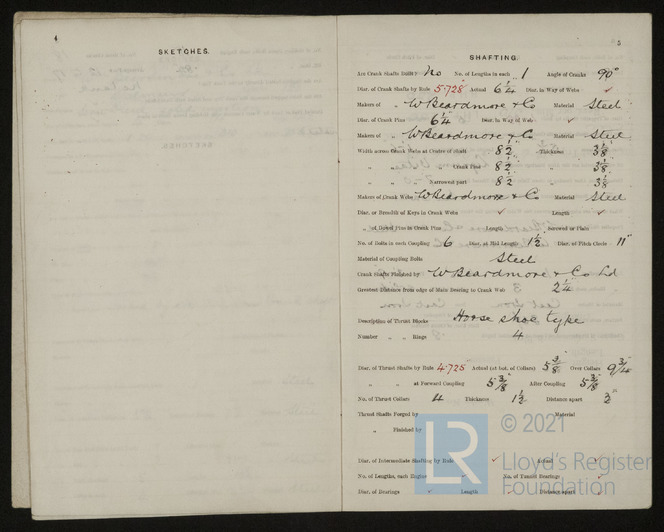 4
SKETCHES.
5
SHAFTING.
Are Crank Shafts Built? No No. of Lengths in each 1 Angle of Cranks 90°
Diar. of Crank Shafts by Rule 5.728 Actual 6 1/4 Diar. in Way of Webs ✓
Makers of „ W Beardmore & Co Material Steel
Diar. of Crank Pins 6 1/4 Diar. in Way of Web ✓
Makers of „ W Beardmore & Co Material Steel
Width across Crank Webs at Centre of Shaft 8 1/2 Thickness 3 1/8
„ „ „ Crank Pins 8 1/2 „ 3 1/8
„ „ Narrowest part 8 1/2 „ 3 1/8
Makers of Crank Webs W Beardmore & Co Material Steel
Diar. or Breadth of Keys in Crank Webs ✓ Length ✓
„ of Dowel Pins in Crank Pins Length Screwed or Plain
No. of Bolts in each Coupling 6 Diar. at Mid Length 1 1/2 Diar. of Pitch Circle 11"
Material of Coupling Bolts Steel
Crank Shafts Finished by W Beardmore & Co Ld
Greatest Distance from edge of Main Bearing to Crank Web 2 1/4
Description of Thrust Blocks Horse shoe type
Number „ „ Rings 4
Diar. of Thrust Shafts by Rule 4.725 Actual (at bot. of Collars) 5 3/8 Over Collars 9 3/4
„ „ at Forward Coupling 5 3/8 After Coupling 5 3/8
No. of Thrust Collars 4 Thickness 1 1/2 Distance apart
Thrust Shafts Forged by Material
„ Finished by
Diar. of Intermediate Shafting by Rule ✓ Actual ✓
No. of Lengths, each Engine ✓ No. of Tunnel Bearings ✓
Diar. of Bearings ✓ Length ✓ Distance apart ✓
LR
© 2021
Lloyd's Register
Foundation